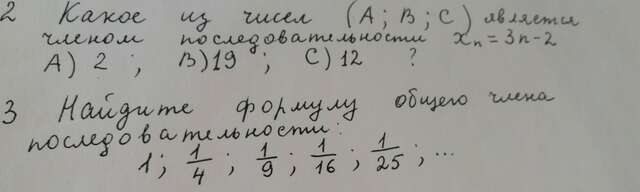 2 Какое из чисел (A; B; C) является
членом последовательности xₙ = 3n-2
A) 2 ; B) 19 ; C) 12 ?
3 Найдите формулу общего члена
последовательности:
1; 1/4 ; 1/9 ; 1/16 ; 1/25 ; ...